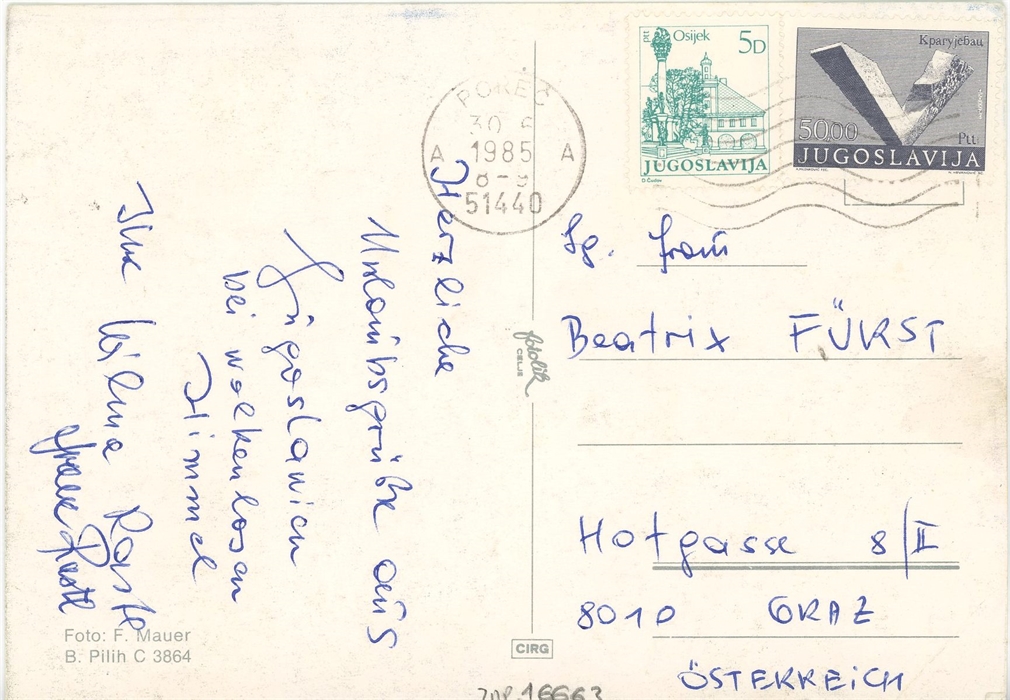 Herzliche
Urlaubsgrüße aus
Jugoslawien
bei wolkenlosen
Himmel
Ihre Wilma
Foto: F. Mauer
B. Pilih C 3864
fotolik
CELJE
CIRG
POREČ
30 6
A 1985 A
8-9
51440
ptt Osijek 5D
JUGOSLAVIJA
Краgујевац
50,00 Ptt
JUGOSLAVIJA
Sg. Frau
Beatrix FÜRST
Hofgasse 8/II
8010 GRAZ
ÖSTERREICH
16663